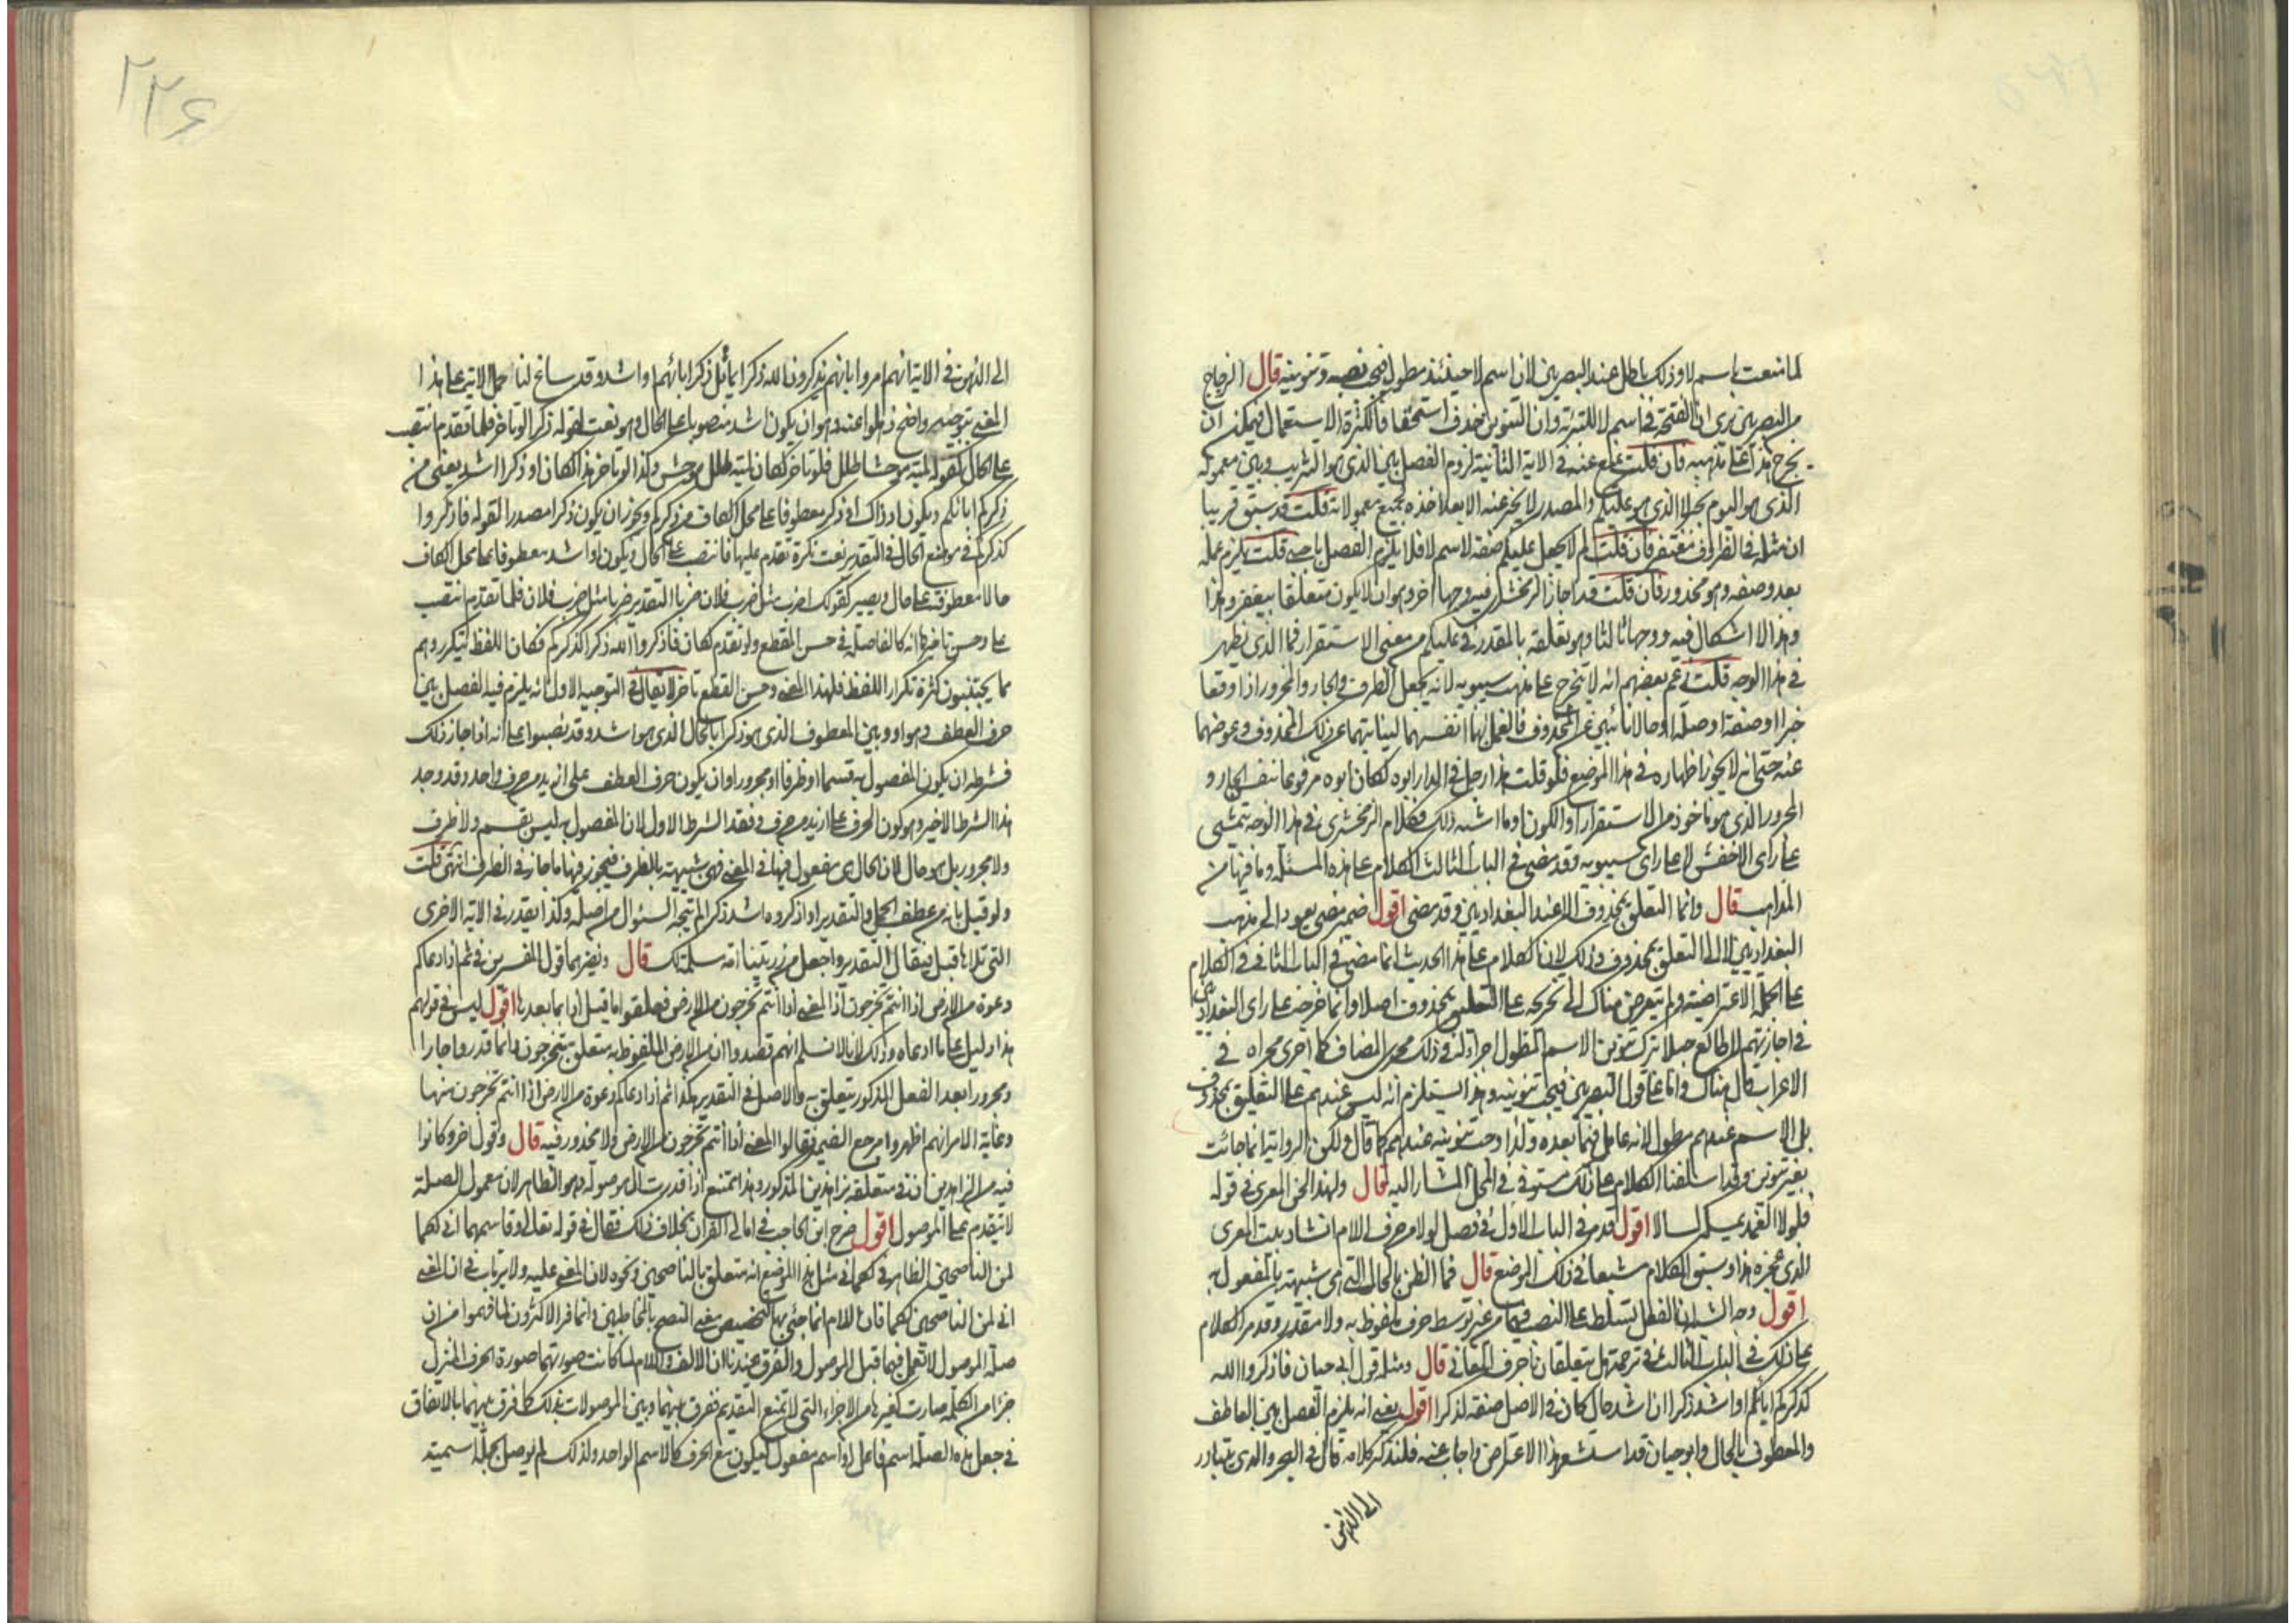 لما نعت باسم لا وذلك باطل عند البصريين لان اسم لا حينئذ مطول فيجب نصبه وتنوينه قال الزجاج
من البصريين يرى ان الفتحة في اسم لا للتبرئة وان التنوين حذف استخفافا لكثرة الاستعمال فيمكن ان
يخرج هذا على مذهبه فان قلت يمنع عنه في الاية الثانية لزوم الفصل بين الذي هو التثريب وبين معموله
الذي هو اليوم بخبر لا الذي هو عليكم والمصدر لا يخبر عنه الا بعد اخذه جميع معمولاته قلت قد سبق قريبا
ان مثله في الظروف مغتفر فان قلت لم لا يجعل عليكم صفة لاسم لا فلا يلزم الفصل باجنبي قلت يلزم عمله
بعد وصفه وهو محذور فان قلت قد اجاز الزمخشري فيه وجها اخر وهو ان لا يكون متعلقا بيغفر وهذا
وهذا لا اشكال فيه ووجها ثالثا وهو تعلقه بالمقدر في عليكم من معنى الاستقرار فما الذي يظهر
في هذا الوجه قلت زعم بعضهم انه لا يتخرج على مذهب سيبويه لانه يجعل الظرف والجار والمجرور اذا وقعا
خبرا او صفة او صلة او حالا نائبين عن المحذوف فالعمل لهما انفسهما لنيابتهما عن ذلك المحذوف وعوضهما
عنه حتى انه لا يجوز اظهاره في هذا الموضع فلو قلت هذا رجل في الدار ابوه لكان ابوه مرفوعا بنفس الجار و
المجرور الذي هو ماخوذ من الاستقرار او الكون او ما اشبه ذلك فكلام الزمخشري في هذا الوجه يتمشى
على راى الاخفش لا على راى سيبويه وقد مضى في الباب الثالث الكلام على هذه المسئلة وما فيها من
المذاهب قال وانما التعلق بمحذوف الا عند البغداديين وقد مضى اقول ضمير مضى يعود الى مذهب
البغداديين لا الى التعلق بمحذوف وذلك لان الكلام على هذا الحديث انما مضى في الباب الثاني في الكلام
على الجملة الاعتراضية ولم يتعرض هناك الى تخريجه على التعلق بمحذوف اصلا وانما خرجه على راى البغداديين
في اجازتهم لا طالع جبلا ترك تنوين الاسم المطول اجراء له في ذلك مجرى المضاف كما اجرى مجراه في
الاعراب قال هناك واما على قول البصريين فيجب تنوينه وهذا يستلزم انه ليس عندهم على التعليق بمحذوف
بل الاسم عندهم مطول لانه عامل فيما بعده ولذا وجب تنوينه عندهم كما قال ولكن الرواية انما جائت
بغير تنوين وقد اسلفنا الكلام على ذلك مستوفى في المحل المشار اليه قال ولهذا لحن المعرى في قوله
فلولا الغمد يمسكه لسالا اقول قد مر في الباب الاول في فصل لولا من حرف اللام انشاد بيت المعرى
الذي عجزه هذا وسبق الكلام مشبعا في ذلك الموضع قال فما الظن بالحال التي هي شبيهة بالمفعول به
اقول وجه الشبه ان الفعل يتسلط على النصب فيهما من غير توسط حرف ملفوظ به ولا مقدر وقد مر الكلام
على ذلك في الباب الثالث في ترجمة هل يتعلقان باحرف المعاني قال ومثله قول ابي حيان فاذكروا الله
كذكركم اباءكم او اشد ذكرا ان اشد حال كان في الاصل صفة لذكرا اقول يعني انه يلزم الفصل بين العاطف
والمعطوف بالحال وابو حيان قد استشعر هذا الاعتراض واجاب عنه فلنذكر كلامه قال في البحر والذي يتبادر
الى الذهن
٢٢٦
الى الذهن في الاية انهم امروا بانهم يذكرون الله ذكرا يماثل ذكر ابائهم او اشد وقد ساغ لنا حمل الاية على هذا
المعنى بتوجيه واضح ذهلوا عنه وهو ان يكون اشد منصوبا على الحال وهو نعت لقوله ذكرا لو تاخر فلما تقدم انتصب
على الحال كقوله لمية موحشا طلل فلو تاخر لكان لمية طلل موحش وكذا لو تاخر هذا لكان او ذكرا اشد يعني من
ذكركم اباءكم ويكون اذ ذاك او ذكر معطوفا على محل الكاف من ذكركم ويجوز ان يكون ذكرا مصدرا لقوله فاذكروا
كذكركم في موضع الحال في التقدير نعت نكرة تقدم عليها فانتصب على الحال ويكون او اشد معطوفا على محل الكاف
حالا معطوفة على حال ويصير كقولك اضرب مثل ضرب فلان ضربا التقدير ضربا مثل ضرب فلان فلما تقدم انتصب
على وحسن تاخيره انه كالفاصلة في حسن المقطع ولو تقدم لكان فاذكروا الله ذكرا كذكركم فكان اللفظ يتكرر وهم
مما يجتنبون كثرة تكرار اللفظ فلهذا المعنى وحسن القطع تاخر لا يقال في التوجيه الاول انه يلزم فيه الفصل بين
حرف العطف وهو او وبين المعطوف الذي هو ذكرا بالحال الذي هو اشد وقد نصبوا على انه اذا جاز ذلك
فشرطه ان يكون المفصول به قسما او ظرفا او مجرورا وان يكون حرف العطف على ازيد من حرف واحد وقد وجد
هذا الشرط الاخير وهو كون الحرف على ازيد من حرف وفقد الشرط الاول لان المفصول به ليس بقسم ولا ظرف
ولا مجرور بل هو حال لان الحال هي مفعول فيها في المعنى فهي شبيهة بالظرف فيجوز فيها ما جاز في الظرف انتهى قلت
ولو قيل بانه من عطف الجمل والتقدير او اذكروه اشد ذكرا لم يتجه السئوال من اصله وكذا يقدر في الاية الاخرى
التي تلاها قبل فيقال التقدير واجعل من ذريتنا امة مسلمة لك قال ونظيرهما قول المفسرين في ثم اذا دعاكم
دعوة من الارض اذا انتم تخرجون اذ المعنى اذا انتم تخرجون من الارض فعلقوا ما قبل اذا بما بعدها اقول ليس في قولهم
هذا دليل على ما ادعاه وذلك لانا لا نسلم انهم قصدوا ان من الارض الملفوظ به متعلق بتخرجون وانما قدروا جارا
ومجرورا بعد الفعل المذكور يتعلق به والاصل في التقدير هكذا ثم اذا دعاكم دعوة من الارض اذا انتم تخرجون منها
وغاية الامر انهم اظهروا مرجع الضمير فقالوا المعنى اذا انتم تخرجون من الارض ولا محذور فيه قال وقول اخر وكانوا
فيه من الزاهدين ان في متعلقة بزاهدين المذكور وهذا ممتنع اذا قدرت ال موصولة وهو الظاهر لان معمول الصلة
لا يتقدم على الموصول اقول صرح ابن الحاجب في امالي القران بخلاف ذلك فقال في قوله تعالى وقاسمهما اني لكما
لمن الناصحين الظاهر في لكما في مثل هذا الموضع انه متعلق بالناصحين ونحوه لان المعنى عليه ولا يرتاب في ان المعنى
اني لمن الناصحين لكما فان اللام انما جئ بها لتخصيص معنى النصح بالمخاطبين وانما فر الاكثرون لما فهموا من ان
صلة الموصول لا تعمل فيما قبل الموصول والفرق عندنا ان الالف واللام لما كانت صورتهما صورة الحرف المنزل
جزءا من الكلمة صارت كغيرها من الاجزاء التي لا تمنع التقديم ففرق بينهما وبين الموصولات بذلك كما فرق بينهما بالاتفاق
في جعل هذه الصلة اسم فاعل او اسم مفعول ليكون مع الحرف كالاسم الواحد ولذلك لم يوصل بجملة اسمية